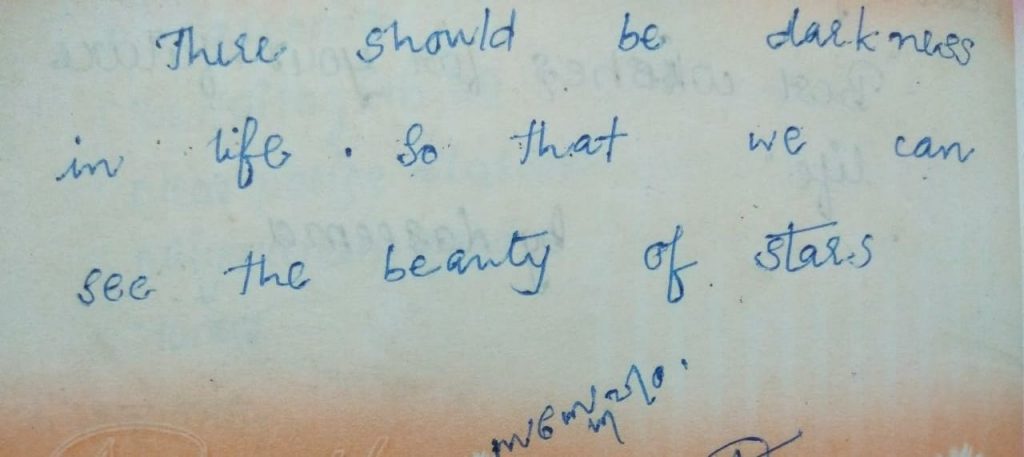 There should be darkness
in life. So that we can
see the beauty of stars
സസ്നേഹം.